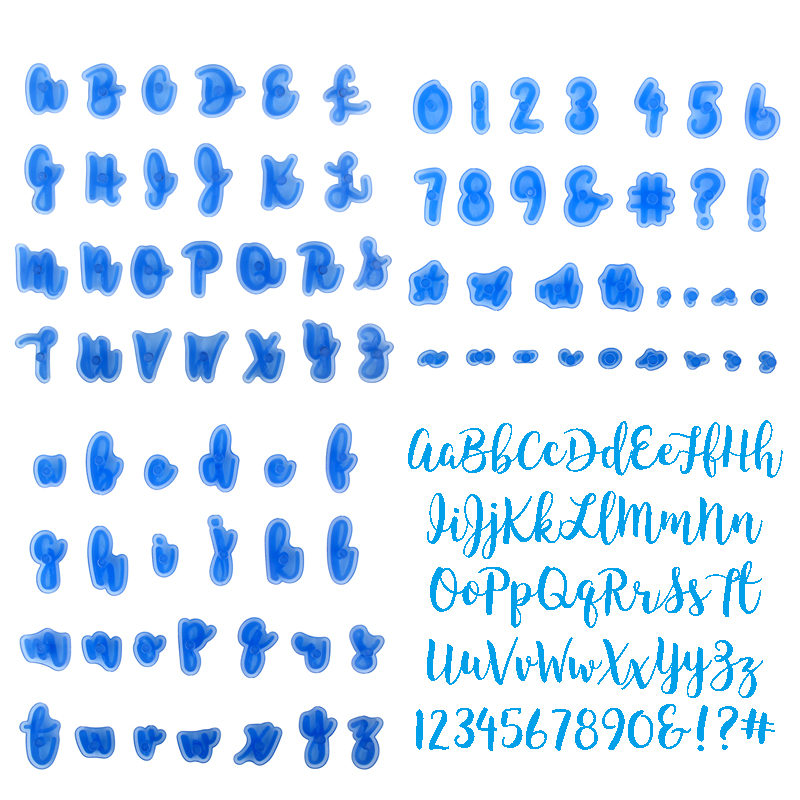 A B C D E F
G H I J K L
M N O P Q R S
T U V W X Y Z
0 1 2 3 4 5 6
7 8 9 & # ? !
st nd rd th
a b c d e f
g h i j k l
m n o p q r s
t u v w x y z
AaBbCcDdEeFfHh
IiJjKkLlMmNn
OoPpQqRrSsTt
UuVvWwXxYyZz
1234567890&!?#